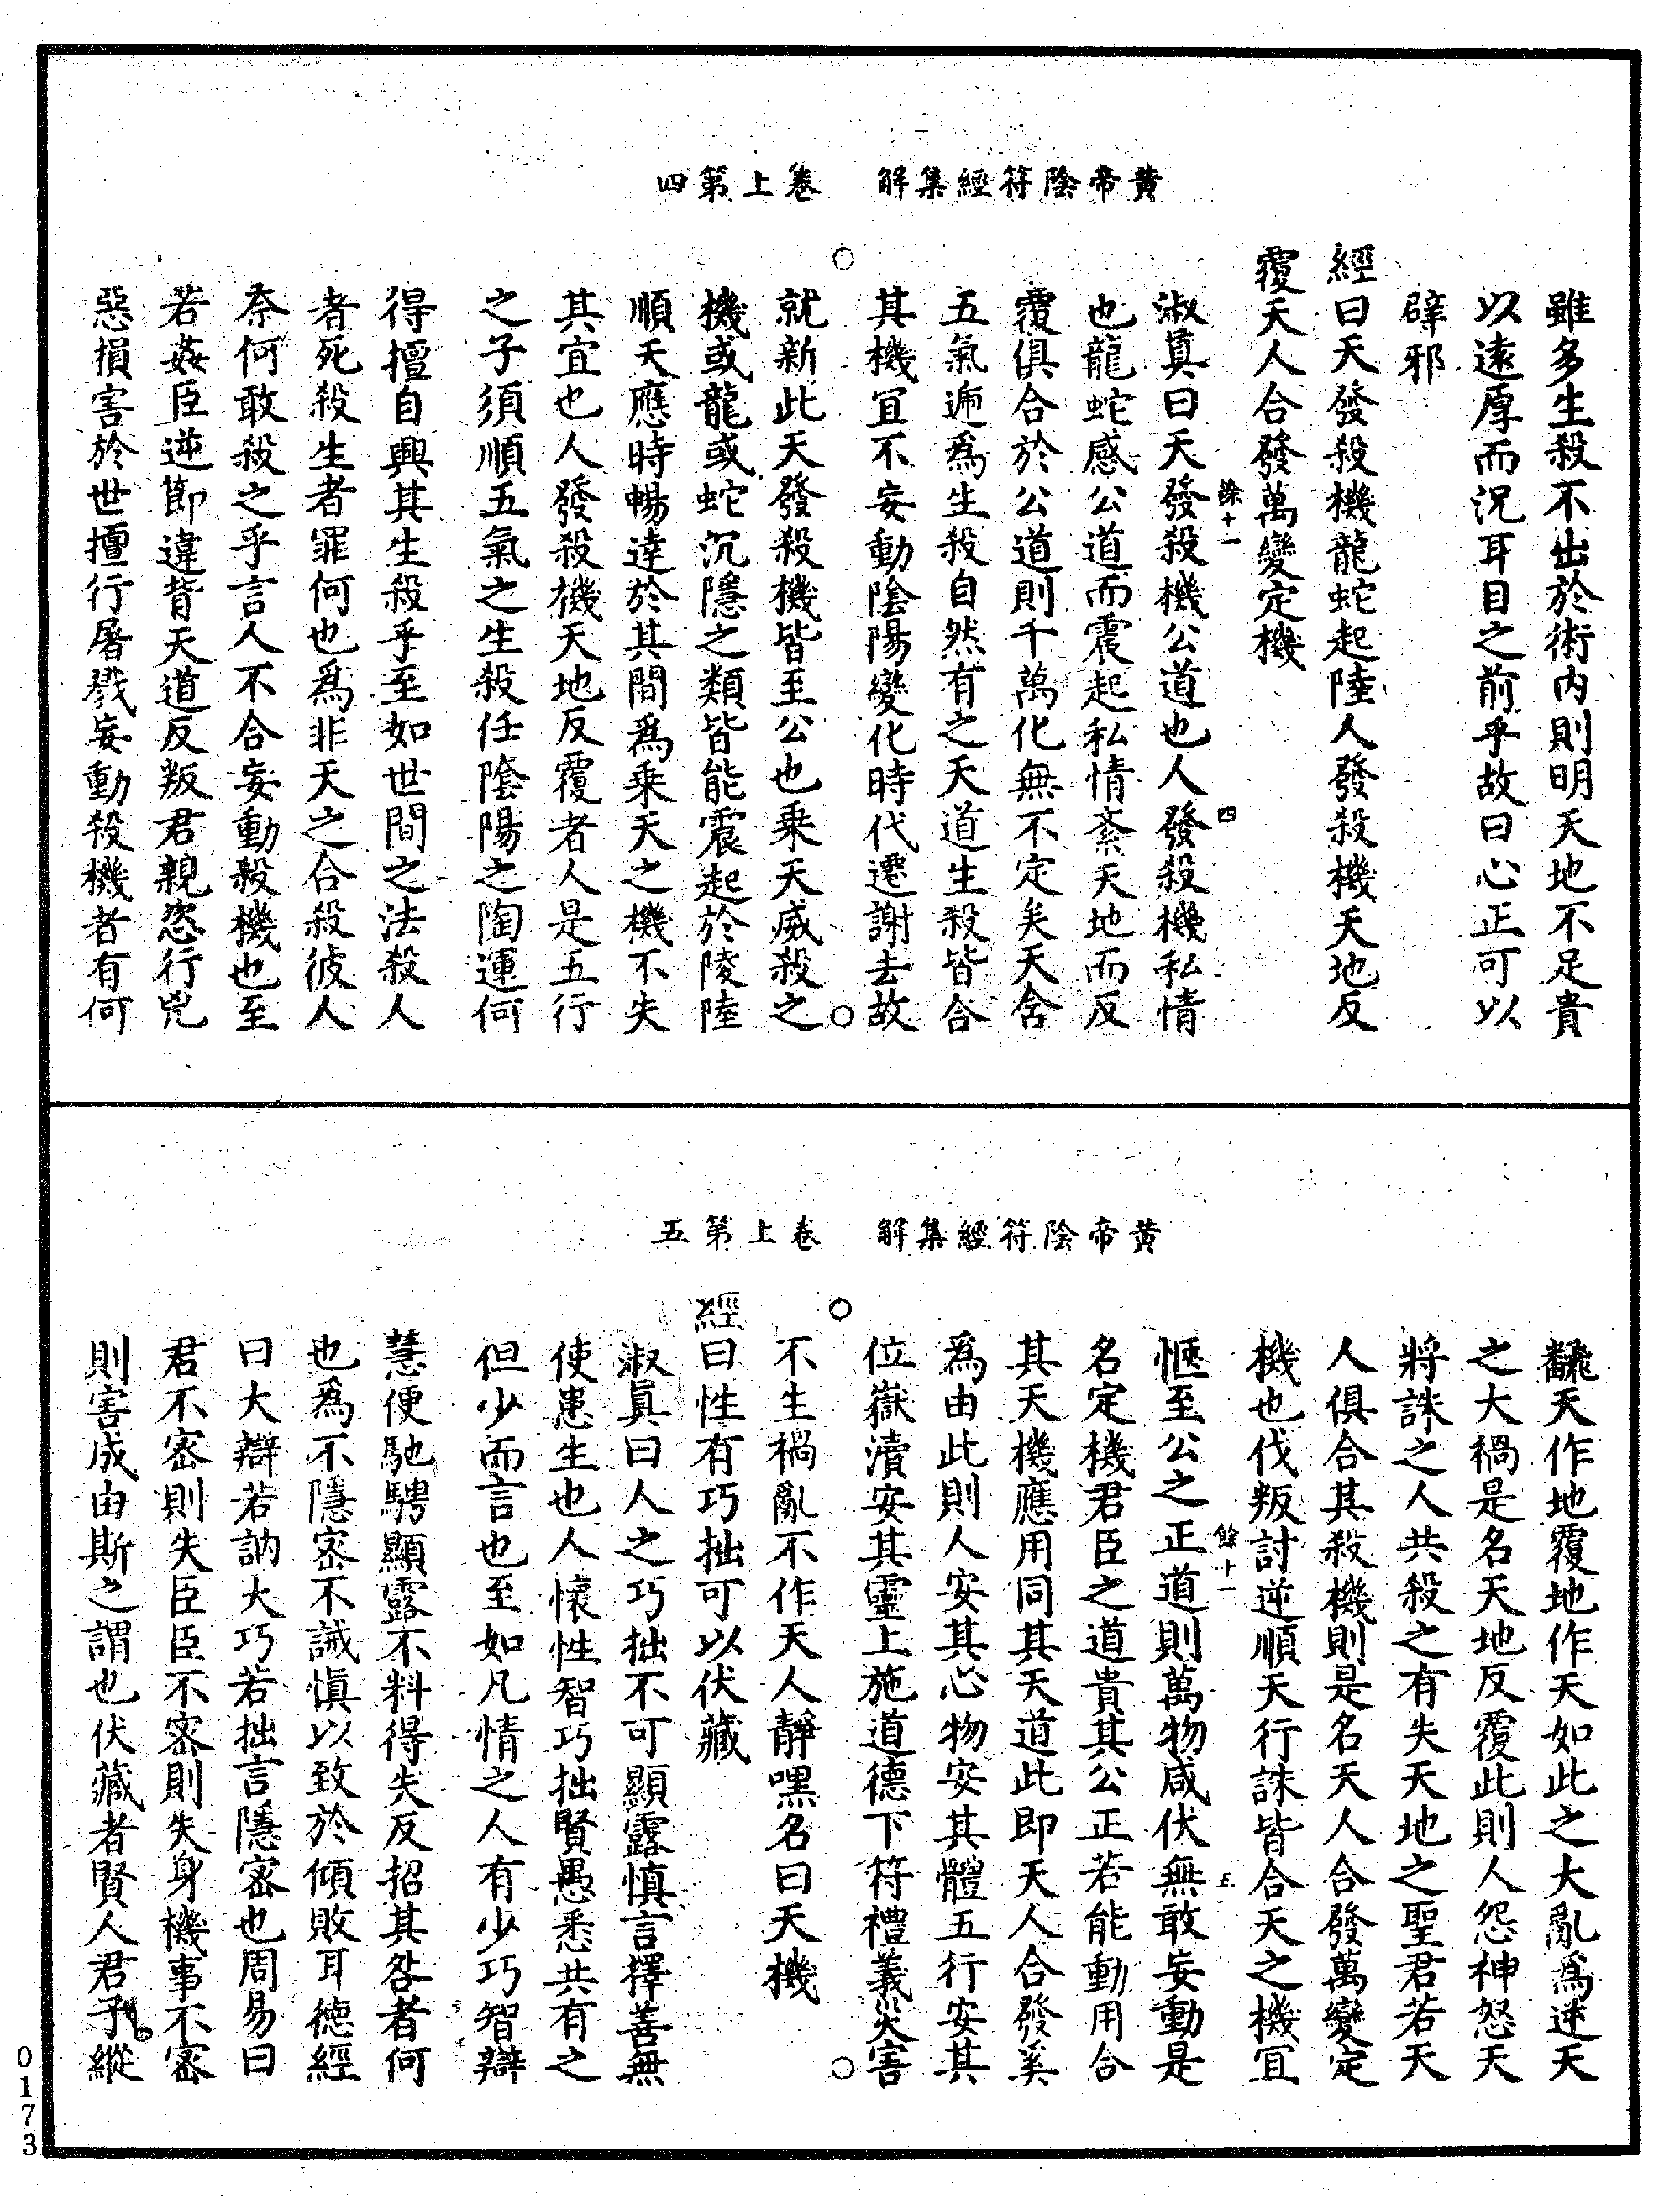 黃帝陰符經集解　卷上第四
雖多生殺不出於術內則明天地不足貴
以遠厚而況耳目之前乎故曰心正可以
辟邪
經曰天發殺機龍蛇起陸人發殺機天地反
覆天人合發萬變定機
餘十一　四
淑真曰天發殺機公道也人發殺機私情
也龍蛇感公道而震起私情紊天地而反
覆俱合於公道則千萬化無不定矣天含
五氣遞為生殺自然有之天道生殺皆合
其機宜不妄動陰陽變化時代遷謝去故
就新此天發殺機皆至公也乘天威殺之
機或龍或蛇沉隱之類皆能震起於陵陸
順天應時暢達於其間為乘天之機不失
其宜也人發殺機天地反覆者人是五行
之子須順五氣之生殺任陰陽之陶運何
得擅自興其生殺乎至如世間之法殺人
者死殺生者罪何也為非天之合殺彼人
奈何敢殺之乎言人不合妄動殺機也至
若姦臣逆節違背天道反叛君親恣行兇
惡損害於世擅行屠戮妄動殺機者有何
黃帝陰符經集解　卷上第五
飜天作地覆地作天如此之大亂為逆天
之大禍是名天地反覆此則人怨神怒天
將誅之人共殺之有失天地之聖君若天
人俱合其殺機則是名天人合發萬變定
機也伐叛討逆順天行誅皆合天之機宜
餘十一　五
愜至公之正道則萬物咸伏無敢妄動是
名定機君臣之道貴其公正若能動用合
其天機應用同其天道此即天人合發奚
為由此則人安其心物安其體五行安其
位嶽瀆安其靈上施道德下符禮義災害
不生禍亂不作天人靜嘿名曰天機
經曰性有巧拙可以伏藏
淑真曰人之巧拙不可顯露慎言擇善無
使患生也人懷性智巧拙賢愚悉共有之
但少而言也至如凡情之人有少巧智辯
慧便馳騁顯露不料得失反招其咎者何
也為不隱密不誡慎以致於傾敗耳德經
曰大辯若訥大巧若拙言隱密也周易曰
君不密則失臣臣不密則失身機事不密
則害成由斯之謂也伏藏者賢人君子縱
0173